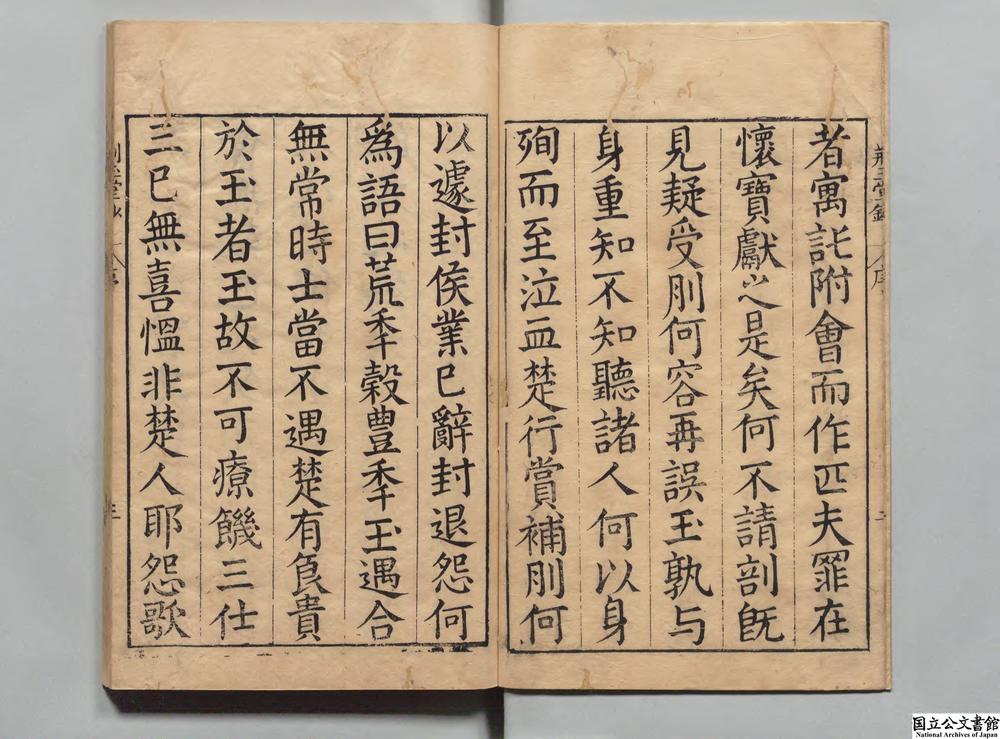 者寓託附會而作匹夫罪在
懷寶獻之是矣何不請剖既
見疑受刖何容再誤玉孰与
身重知不知聽諸人何以身
殉而至泣血楚行賞補刖何
以遽封侯業已辭封退怨何
爲語曰荒季穀豊季玉遇合
無常時士當不遇楚有負貴
於玉者玉故不可療饑三仕
三已無喜慍非楚人耶怨歌
国立公文書館
National Archives of Japan